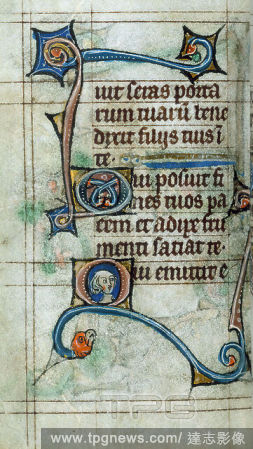 uit seras porta
rum tuarū bene
dixit filijs tuis ī
te.
Qui posuit fi
nes tuos pa
cem et adipe fru
menti satiat te.
Qui emittit e
TPG
www.tpgnews.com/達志影像